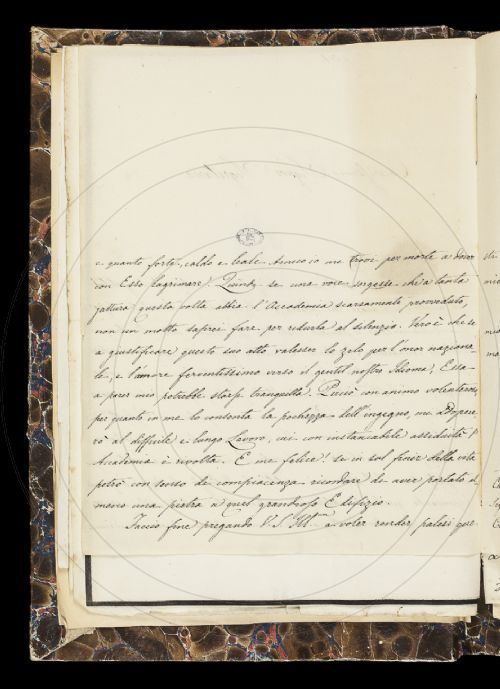 e quanto forte, caldo e leale Amico io me trovi per morte a dover
con Esso lagrimare! Quindi se una voce sorgesse che a tanta
jattura questa volta abbia l'Accademia scarsamente provveduto,
non un motto saprei fare per ridurla al silenzio. Vero è che se
a giustificare questo suo atto valesser lo zelo per l'onor naziona-
le, e l'amore ferventissimo verso il gentil nostro Idioma, Essa
a parer mio potrebbe starsi tranquilla! Perciò con animo volenteroso
per quanto in me lo consenta la pochezza dell'ingegno mi adopere
rò al difficile e lungo Lavoro, cui con instancabile assiduità l'
Accademia è rivolta. E me felice! se in sul finir della vita
potrò con senso di compiacenza ricordare di aver portato al
meno una pietra a quel grandioso Edifizio.
Faccio fine pregando V. S. Ill.ma a voler render palesi que